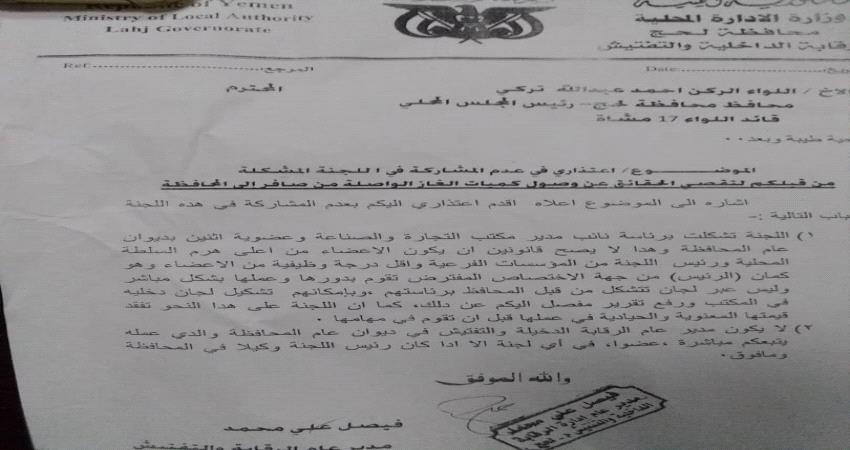 Republic of Yemen
Ministry of Local Authority
Lahj Governorate
وزارة الادارة المحلية
محافظة لحج
رقابة الداخلية والتفتيش
Ref: المرجع
Date
الاخ / اللواء الركن احمد عبدالله تركي المحترم
محافظ محافظة لحج - رئيس المجلس المحلي
قائد اللواء 17 مشاة
طيبة وبعد ..
الموضوع / اعتذاري في عدم المشاركة في اللجنة المشكلة
من قبلكم لتقصي الحقائق عن وصول كميات الغاز الواصلة من صافر الى المحافظة
اشاره الى الموضوع اعلاه اقدم اعتذاري اليكم بعدم المشاركة في هده اللجنة
التالية :-
١) اللجنة تشكلت برئاسة نائب مدير مكتب التجارة والصناعة وعضوية اثنين بديوان
عام المحافظة وهدا لا يصح قانونين ان يكون الاعضاء من اعلى هرم السلطة
المحلية ورئيس اللجنة من المؤسسات الفرعية واقل درجة وظيفية من الاعضاء وهو
كمان (الرئيس) من جهة الاختصاص المفترض تقوم بدورها وعملها بشكل مباشر
وليس عبر لجان تتشكل من قبل المحافظ برئاستهم ,وبإمكانهم تشكيل لجان دخليه
في المكتب ورفع تقرير مفصل اليكم عن دلك, كما ان اللجنة على هدا النحو تفقد
قيمتها المعنوية والحيادية في عملها قبل ان تقوم في مهامها .
٢) لا يكون مدير عام الرقابة الدخيلة والتفتيش في ديوان عام المحافظة والدي عمله
يتبعكم مباشرة ,عضوا, في أي لجنة الا ادا كان رئيس اللجنة وكيلا في المحافظة
ومافوق.
والله الموفق
فيصل علي محمد
مدير عام الرقابة والتفتيش
فيصل علي محمد
مدير عام ادارة الرقابة